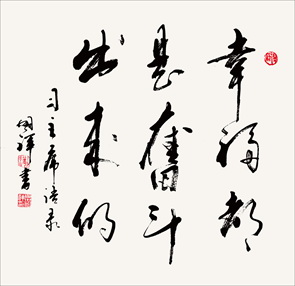 幸福都
是奋斗
出来的
习主席语录
国祥书